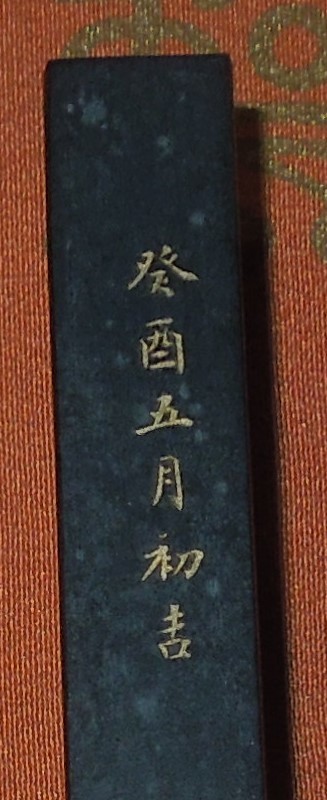 癸酉五月初吉